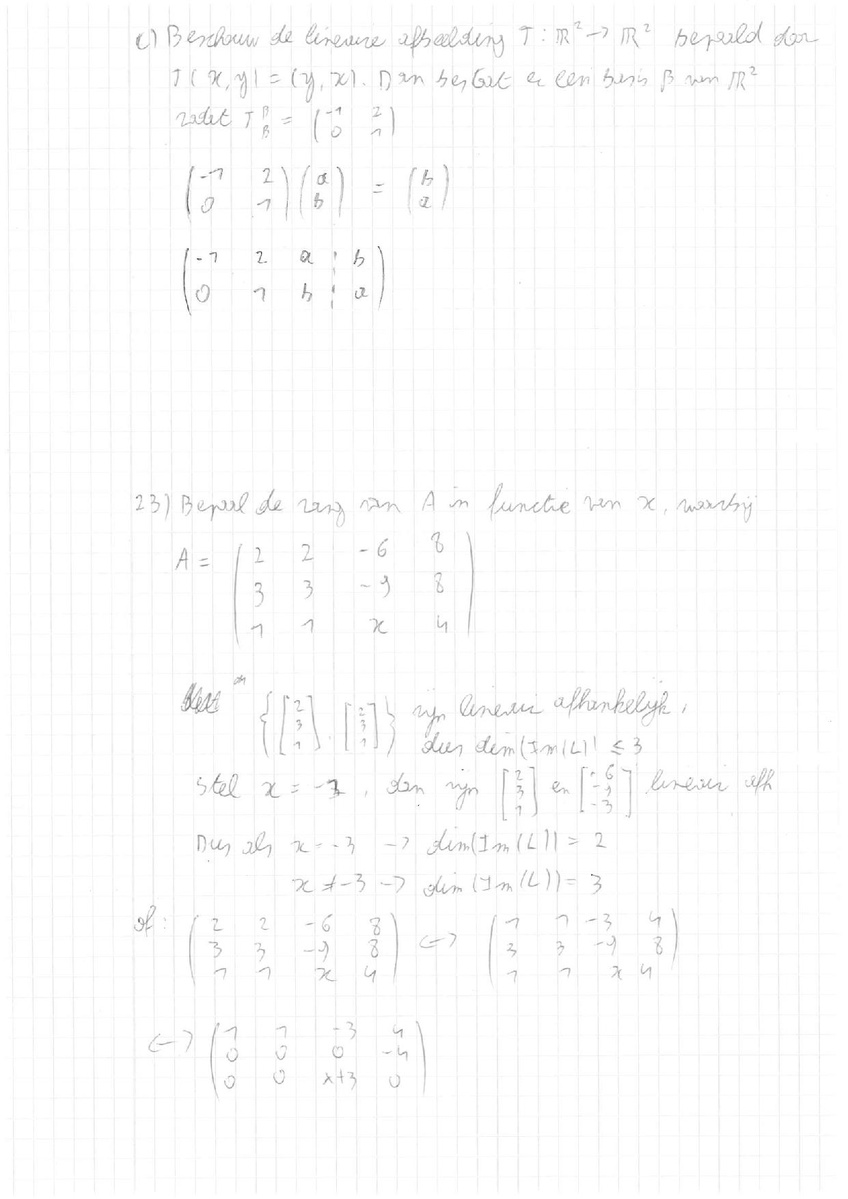 c) Beschouw de lineaire afbeelding T : ℝ² → ℝ² bepaald door
T(x,y) = (y,x). Dan bestaat er een basis β van ℝ²
zodat T^β_β = (-1 2; 0 1)
(-1 2; 0 1)(a; b) = (b; a)
(-1 2 a ¦ b; 0 1 b ¦ a)
23) Bepaal de rang van A in functie van x, waarbij
A = (2 2 -6 8; 3 3 -9 8; 1 1 x 4)
{[2; 3; 1], [2; 3; 1]} zijn lineair afhankelijk,
dus dim(Im(L)) ≤ 3
Stel x = -3, dan zijn [2; 3; 1] en [-6; -9; -3] lineair afh
Dus als x = -3 → dim(Im(L)) = 2
x ≠ -3 → dim(Im(L)) = 3
of: (2 2 -6 8; 3 3 -9 8; 1 1 x 4) ↔ (1 1 -3 4; 3 3 -9 8; 1 1 x 4)
↔ (1 1 -3 4; 0 0 0 -4; 0 0 x+3 0)